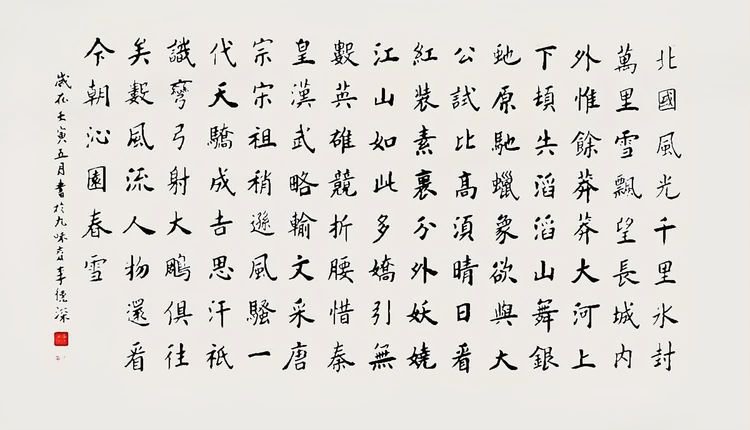 北國風光千里氷封
萬里雪飄望長城內
外惟餘莽莽大河上
下頓失滔滔山舞銀
虵原馳蠟象欲與大
公試比高須晴日看
紅裝素裹分外妖嬈
江山如此多嬌引無
數英雄競折腰惜秦
皇漢武略輸文采唐
宗宋祖稍遜風騷一
代天驕成吉思汗祇
識彎弓射大鵰俱往
矣數風流人物還看
今朝沁園春雪
歲在壬寅五月書於九味齋李德深